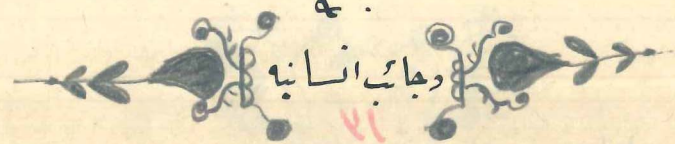 وجائب انسانيه
٣١